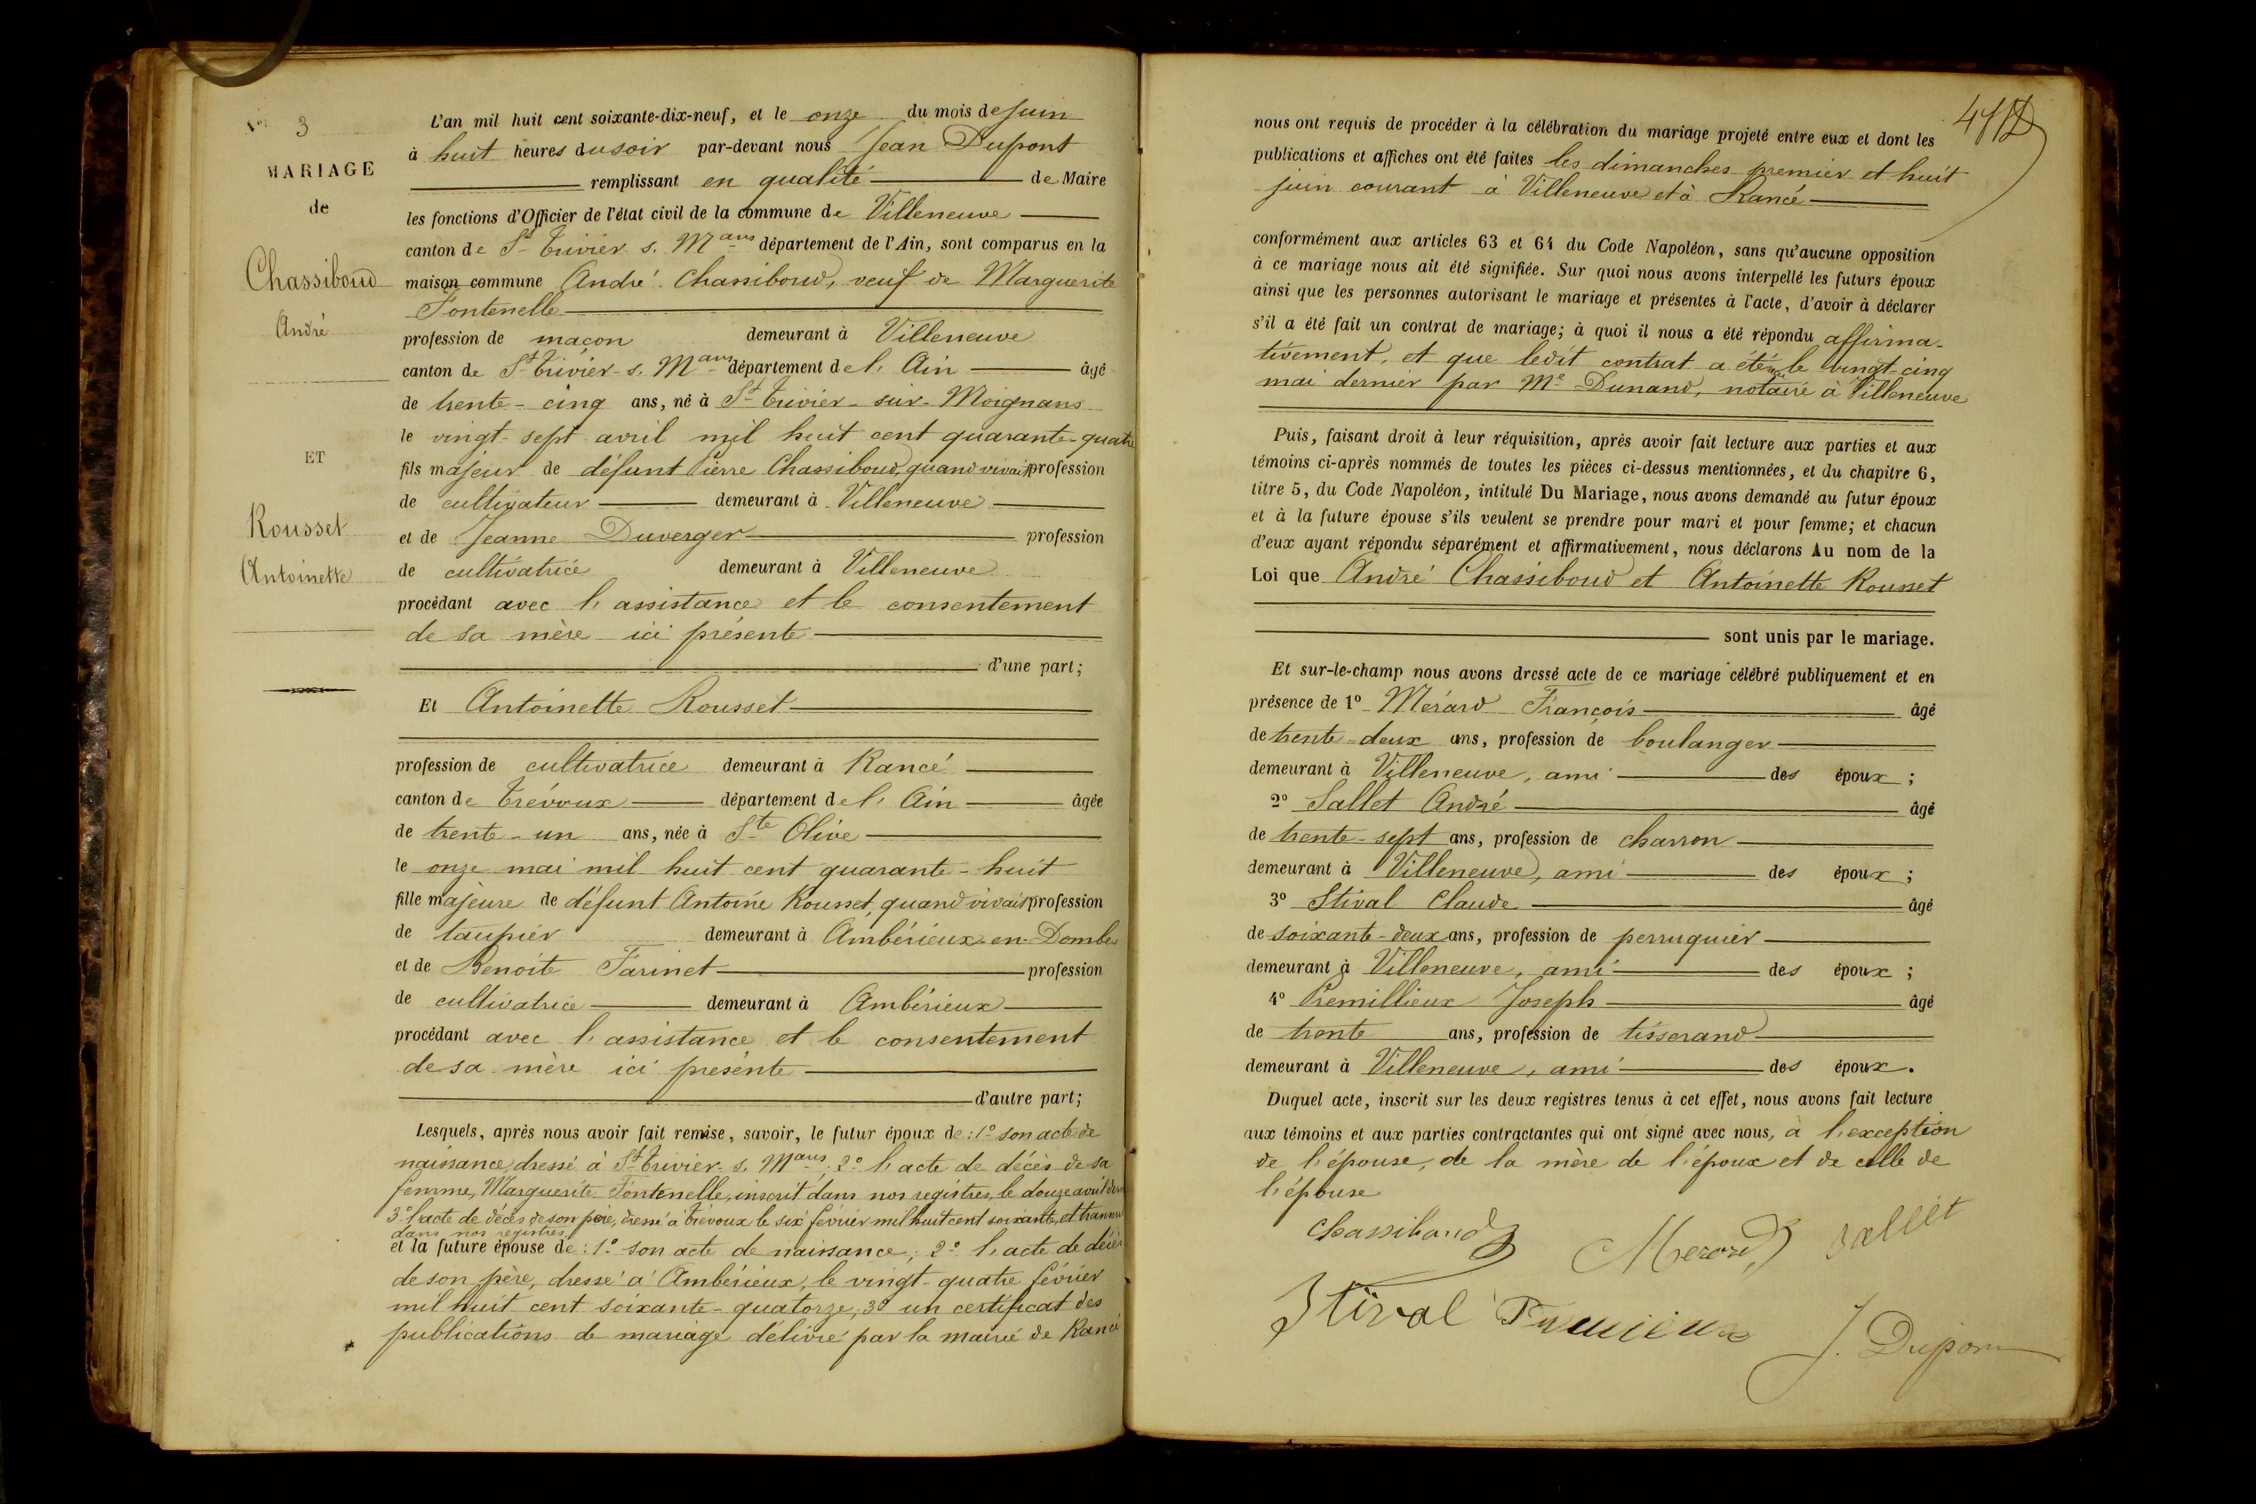 N° 3
MARIAGE
de
Chassiboud
André
ET
Rousset
Antoinette
L'an mil huit cent soixante-dix-neuf, et le onze du mois de juin
à huit heures du soir par-devant nous Jean Dupont
remplissant en qualité de Maire
les fonctions d'Officier de l'état civil de la commune de Villeneuve
canton de St Trivier s. Mans département de l'Ain, sont comparus en la
maison commune André Chassiboud, veuf de Marguerite
Fontenelle
profession de maçon demeurant à Villeneuve
canton de St Trivier s. Mans département de l'Ain âgé
de trente-cinq ans, né à St Trivier-sur-Moignans
le vingt-sept avril mil huit cent quarante-quatre
fils majeur de défunt Pierre Chassiboud, quand vivait profession
de cultivateur demeurant à Villeneuve
et de Jeanne Duverger profession
de cultivatrice demeurant à Villeneuve
procédant avec l'assistance et le consentement
de sa mère ici présente
d'une part;
Et Antoinette Rousset
profession de cultivatrice demeurant à Rancé
canton de Trévoux département de l'Ain âgée
de trente-un ans, née à Ste Olive
le onze mai mil huit cent quarante-huit
fille majeure de défunt Antoine Rousset, quand vivait profession
de taupier demeurant à Ambérieux-en-Dombes
et de Benoite Farinet profession
de cultivatrice demeurant à Ambérieux
procédant avec l'assistance et le consentement
de sa mère ici présente
d'autre part;
Lesquels, après nous avoir fait remise, savoir, le futur époux de: 1° son acte de
naissance, dressé à St Trivier s. Mans; 2° l'acte de décès de sa
femme, Marguerite Fontenelle, inscrit dans nos registres, le douze avril
3° l'acte de décès de son père, dressé à Trévoux le six février mil huit cent soixante, et
dans nos registres
et la future épouse de: 1° son acte de naissance; 2° l'acte de décès
de son père, dressé à Ambérieux, le vingt-quatre février
mil huit cent soixante-quatorze; 3° un certificat des
publications de mariage délivré par la mairie de Rancé
nous ont requis de procéder à la célébration du mariage projeté entre eux et dont les
publications et affiches ont été faites les dimanches premier et huit
juin courant à Villeneuve et à Rancé
conformément aux articles 63 et 64 du Code Napoléon, sans qu'aucune opposition
à ce mariage nous ait été signifiée. Sur quoi nous avons interpellé les futurs époux
ainsi que les personnes autorisant le mariage et présentes à l'acte, d'avoir à déclarer
s'il a été fait un contrat de mariage; à quoi il nous a été répondu affirma-
tivement, et que ledit contrat a été le vingt-cinq
mai dernier par Me Dunand, notaire à Villeneuve
Puis, faisant droit à leur réquisition, après avoir fait lecture aux parties et aux
témoins ci-après nommés de toutes les pièces ci-dessus mentionnées, et du chapitre 6,
titre 5, du Code Napoléon, intitulé Du Mariage, nous avons demandé au futur époux
et à la future épouse s'ils veulent se prendre pour mari et pour femme; et chacun
d'eux ayant répondu séparément et affirmativement, nous déclarons Au nom de la
Loi que André Chassiboud et Antoinette Rousset
sont unis par le mariage.
Et sur-le-champ nous avons dressé acte de ce mariage célébré publiquement et en
présence de 1° Mérard François âgé
de trente-deux ans, profession de boulanger
demeurant à Villeneuve, ami des époux;
2° Sallet André âgé
de trente-sept ans, profession de charron
demeurant à Villeneuve, ami des époux;
3° Stival Claude âgé
de soixante-deux ans, profession de perruquier
demeurant à Villeneuve, ami des époux;
4° Premillieux Joseph âgé
de trente ans, profession de tisserand
demeurant à Villeneuve, ami des époux.
Duquel acte, inscrit sur les deux registres tenus à cet effet, nous avons fait lecture
aux témoins et aux parties contractantes qui ont signé avec nous, à l'exception
de l'épouse, de la mère de l'époux et de celle de
l'épouse
Chassiboud Merard Sallet
Stival J. Dupont